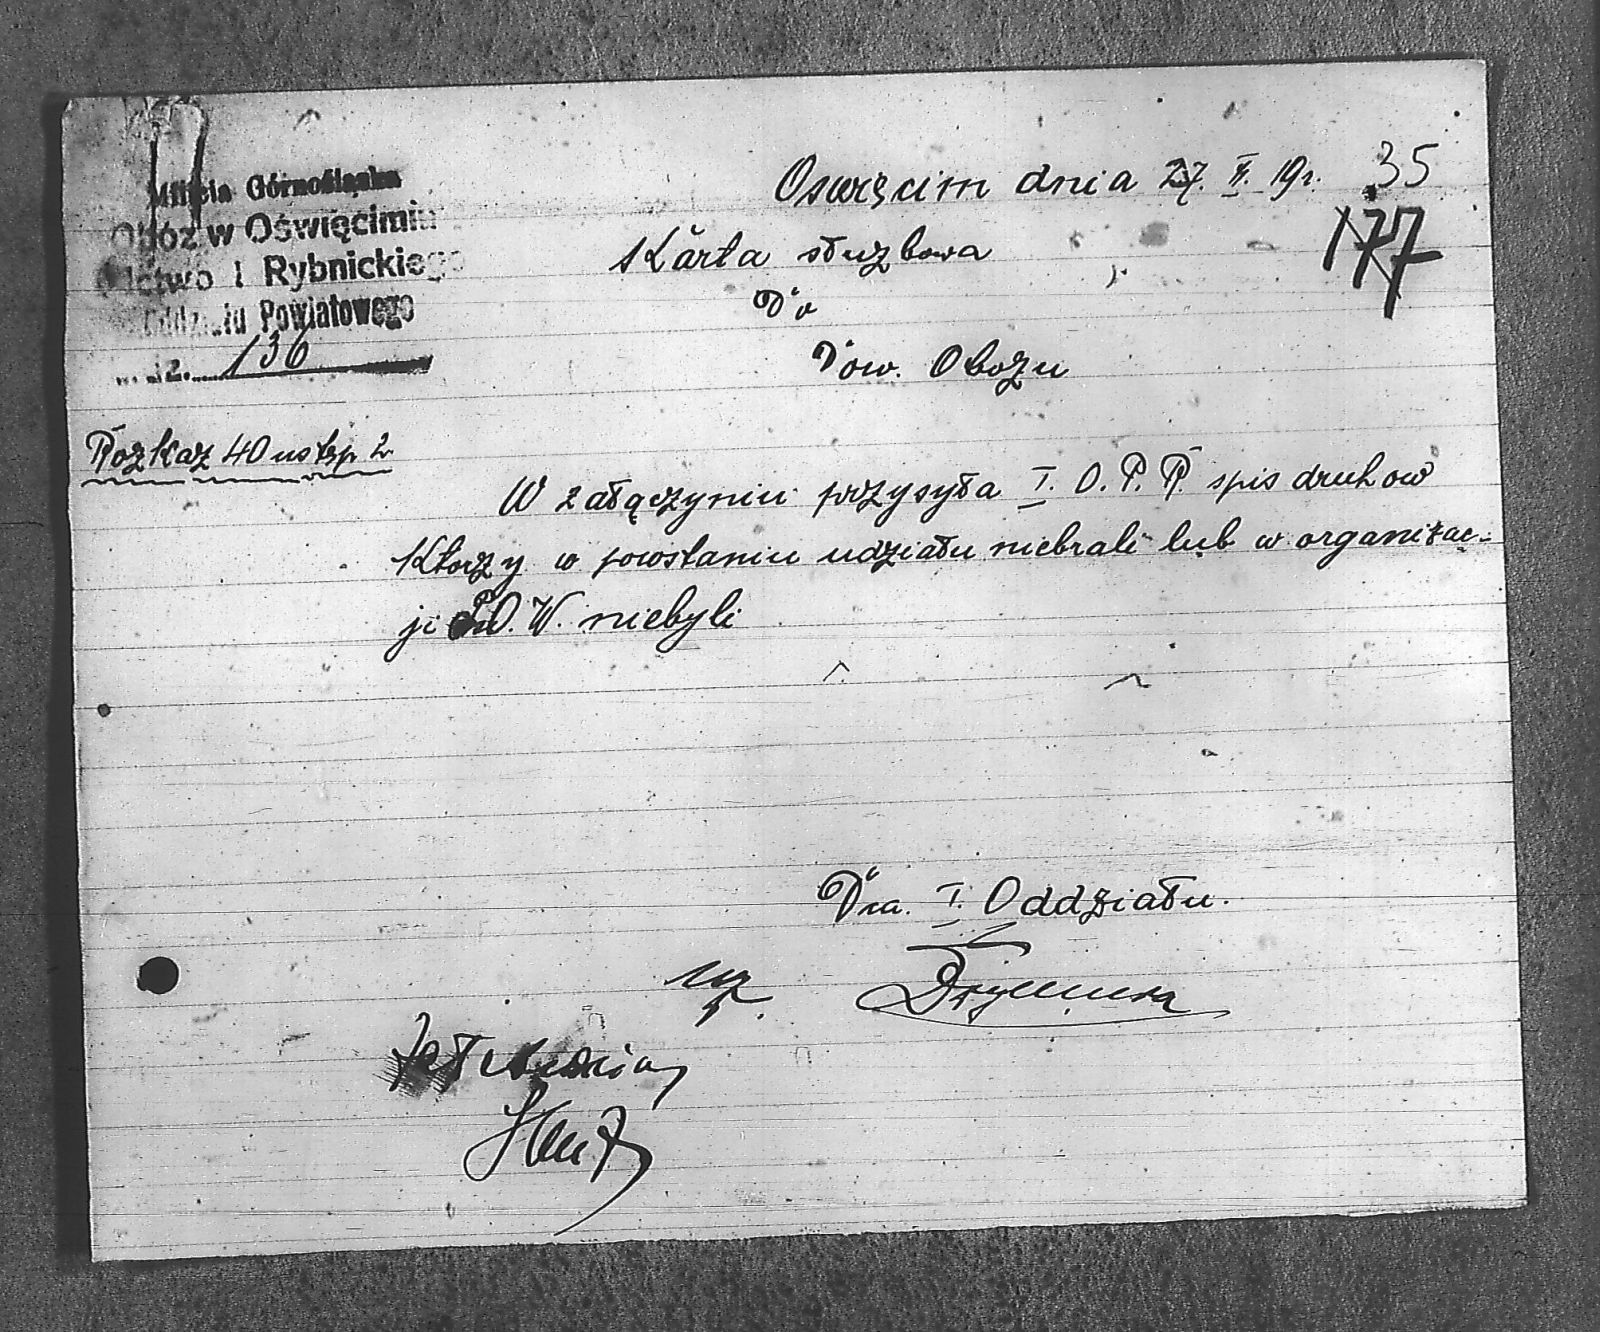 Milicja Górnośląska
Obóz w Oświęcimiu
I Rybnickiego
Oddziału Powiatowego
L. dz. 136
Oswięcim dnia 27. X. 19 r. 35
177
Karta służbowa
Do
Dow. Obozu
Rozkaz 40 ustęp 2
W załączyniu przysyła I. O. P. R. spis druhow
Ktorzy w powstaniu udziału niebrali lub w organizac-
ji P.O.W. niebyli
Dca. I. Oddziału.
wz.